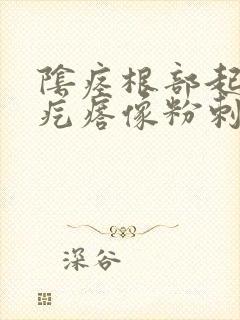 陰痉根部起
疙瘩像粉刺
深谷